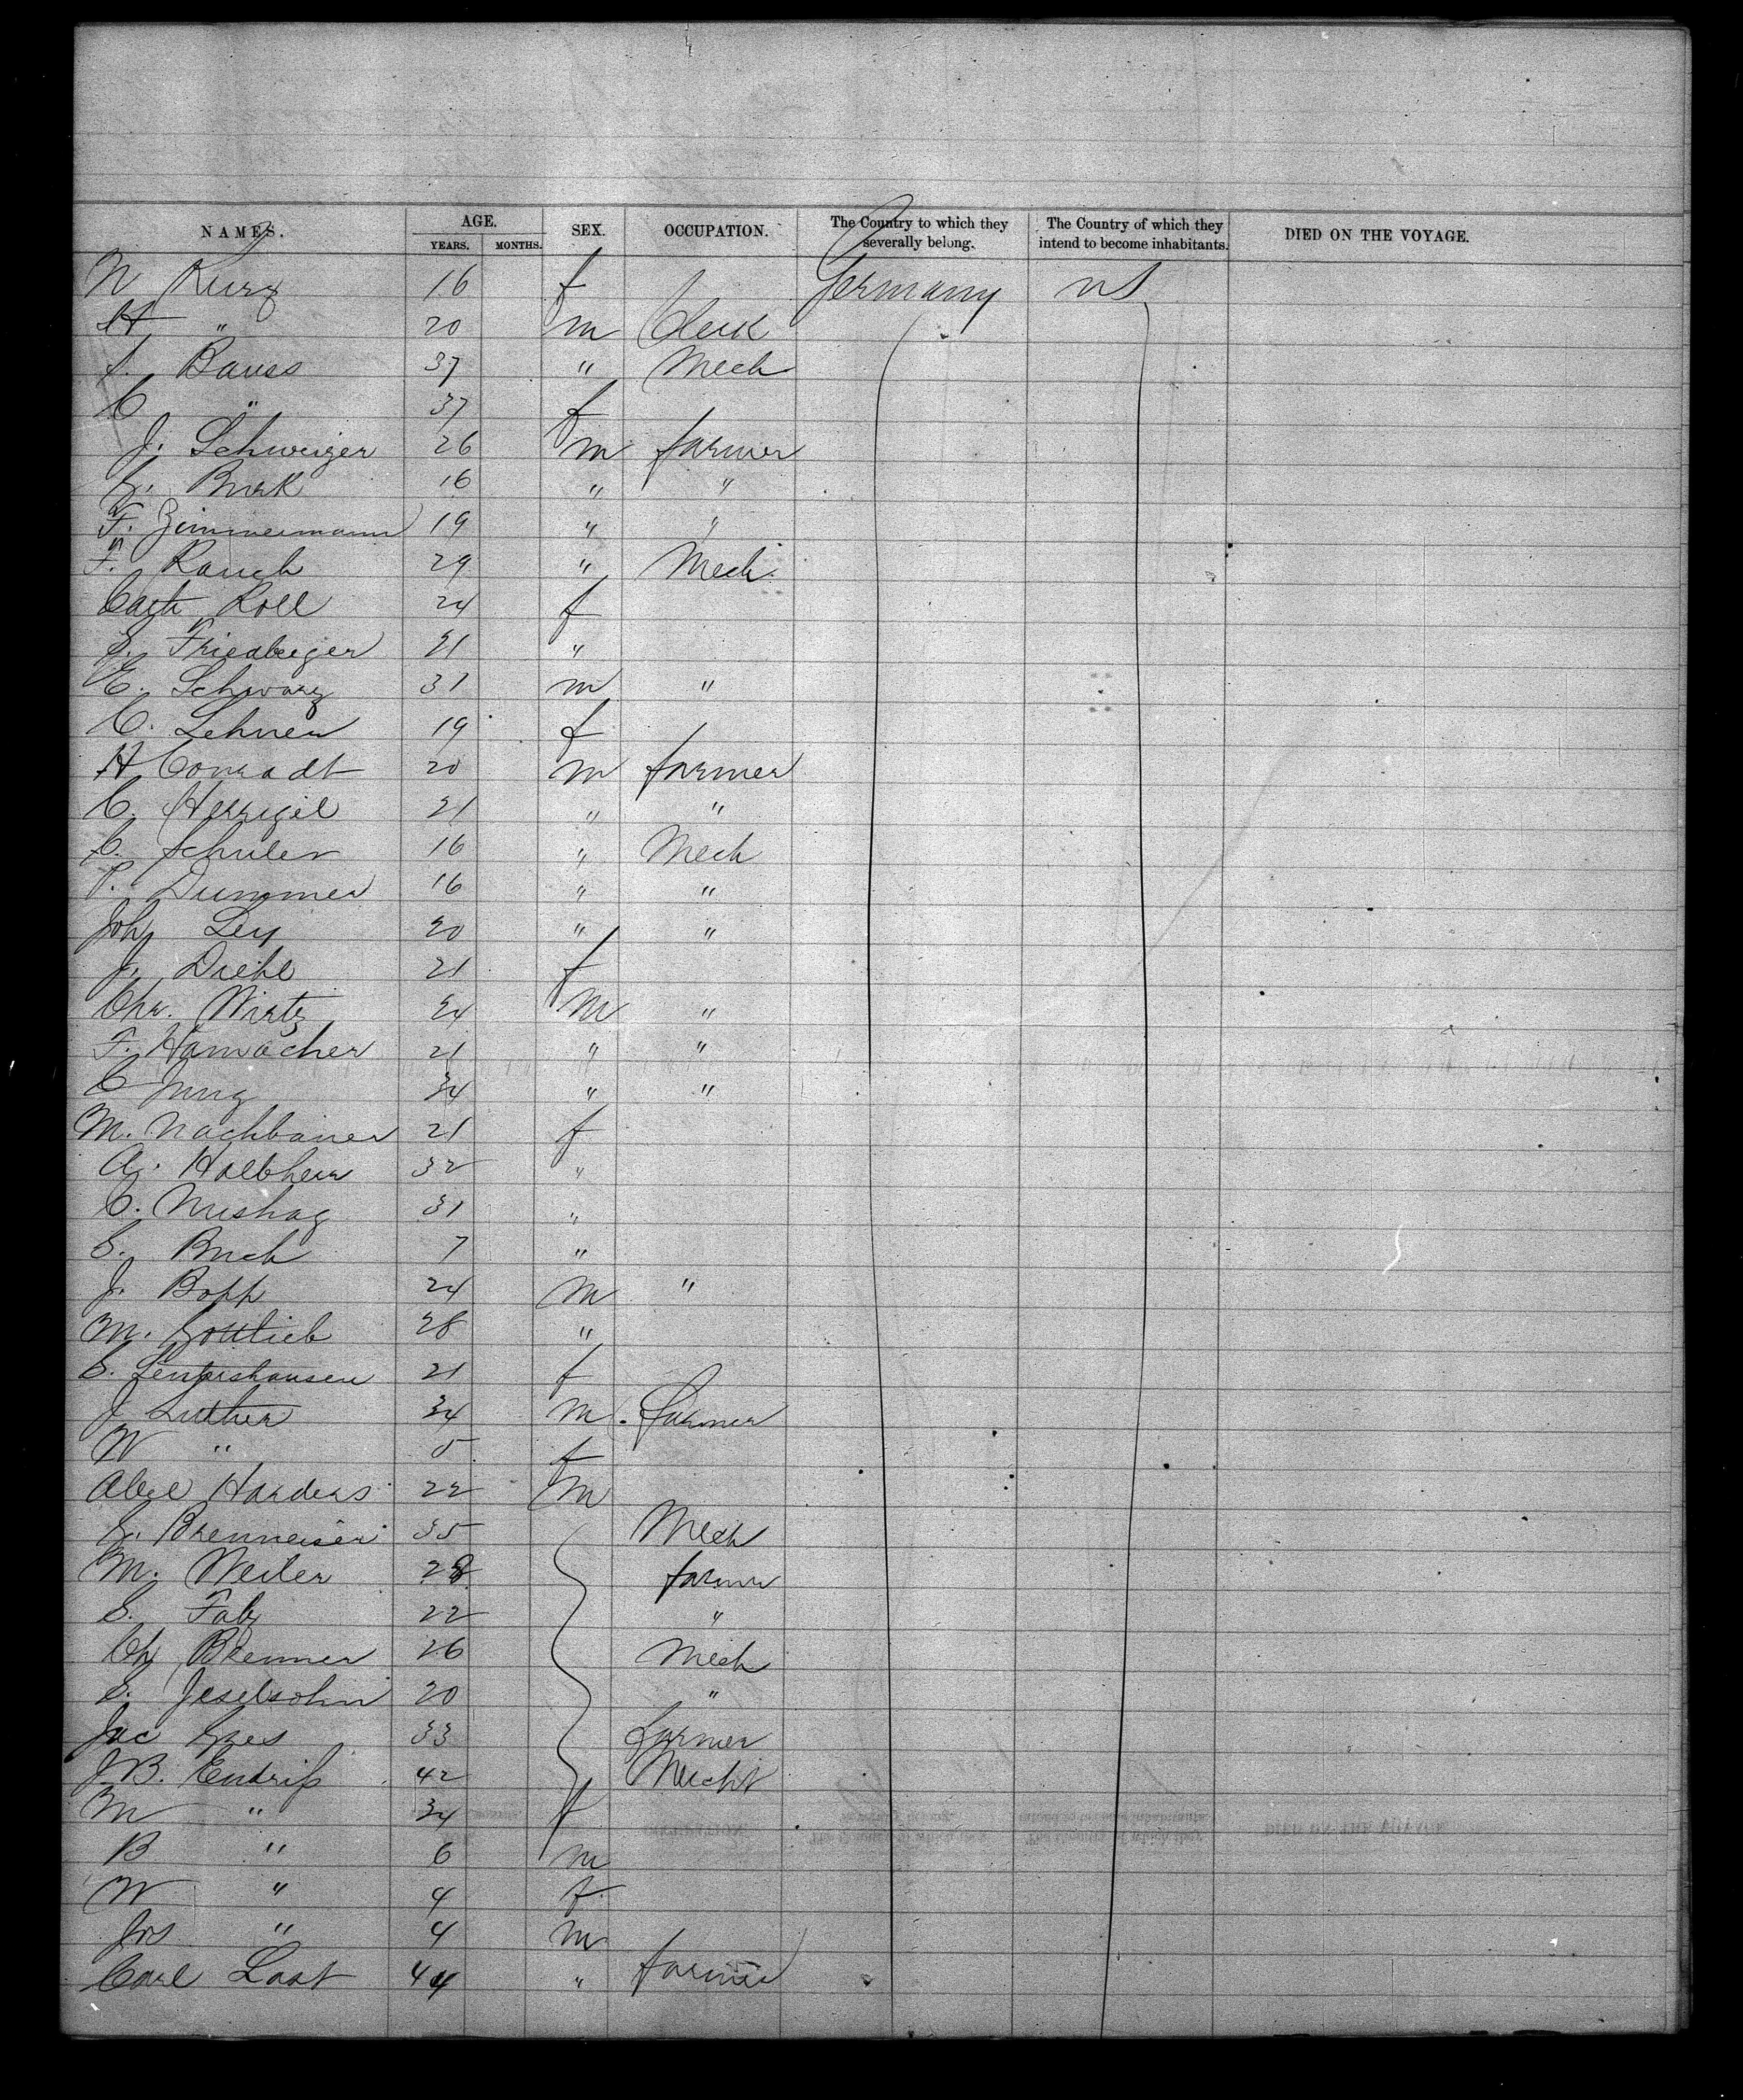 NAMES. AGE. YEARS. MONTHS. SEX. OCCUPATION. The Country to which they severally belong. The Country of which they intend to become inhabitants. DIED ON THE VOYAGE.
N Kurz 16 f Germany US
H " 20 m Clerk
Bauss 37 " Mech
C " 37 f
J. Schweizer 26 m farmer
G. Burk 16 " "
F. Zimmermann 19 " "
F. Rauch 29 " Mech
Cath Roll 24 f
S. Friedberger 21 "
E. Schwarz 31 m "
C. Lehner 19 f
H Conradt 20 m farmer
C. Herrigel 21 " "
C. Schuler 16 " Mech
P. Dummer 16 " "
Joh Ley 20 " "
J. Diehl 21 f
Chr. Wirtz 24 m "
F. Hamacher 21 " "
C Jung 34 " "
M. Nachbauer 21 f
A. 32 "
C. 31 "
Buch 7 "
J. Bopp 24 m "
M. Gottlieb 28 "
21 f
J Luther 34 m. farmer
W " 5 f
Abel Harders 22 m
G. Brenneisen 35 Mech
M. Weiler 28 farmer
S. 22 "
Ch Brenner 26 Mech
S. Jeselsohn 20 "
Jac 33 farmer
J.B. Endriß 42 Mecht
M " 34 f
B " 6 m
W " 4 f
Jos " 4 m
Carl Last 44 " farmer